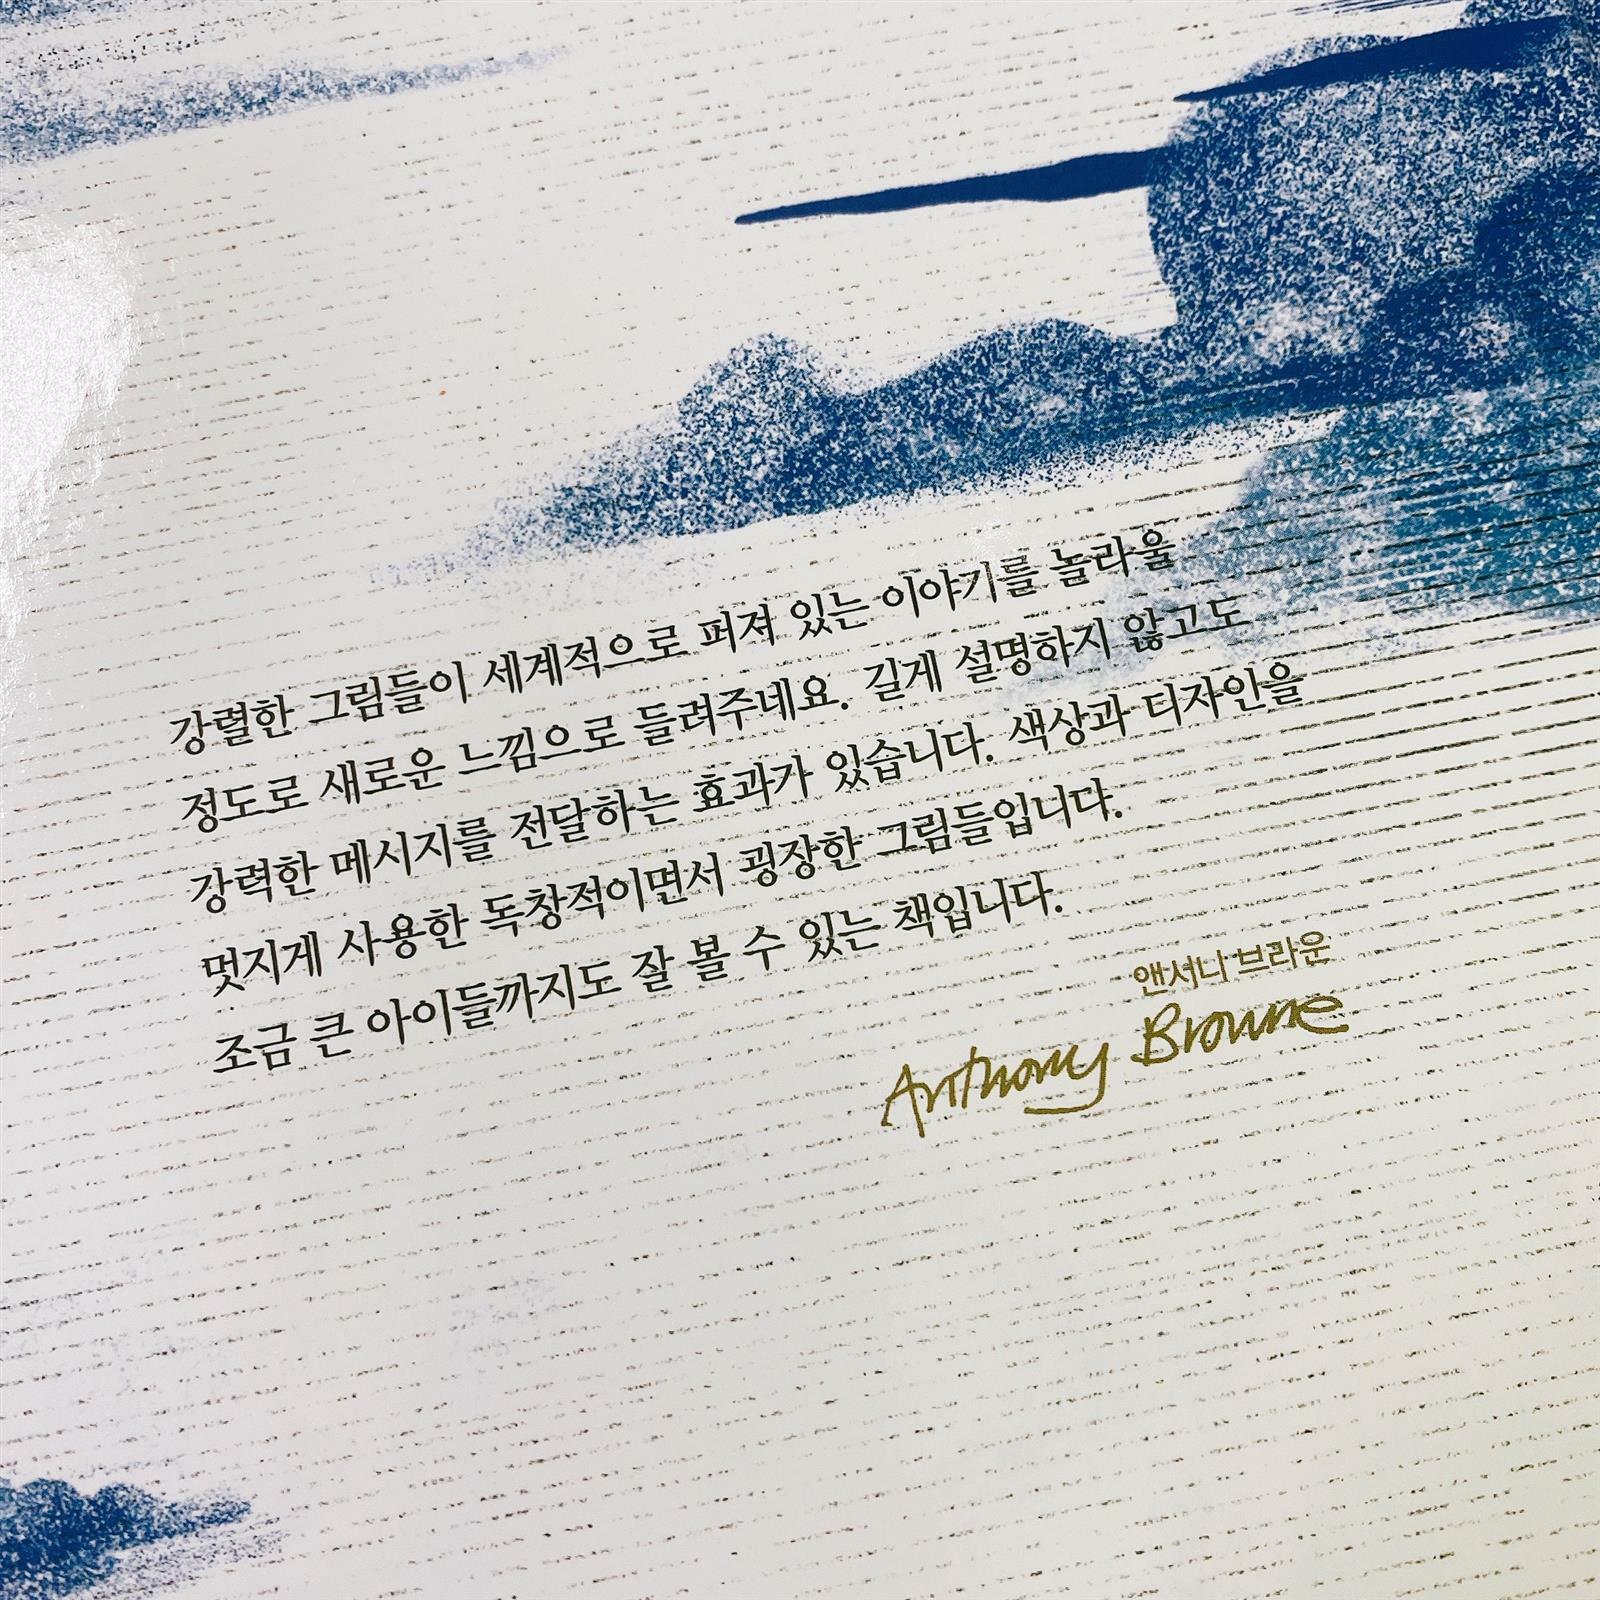 강렬한 그림들이 세계적으로 퍼져 있는 이야기를 놀라울
정도로 새로운 느낌으로 들려주네요. 길게 설명하지 않고도
강력한 메시지를 전달하는 효과가 있습니다. 색상과 디자인을
멋지게 사용한 독창적이면서 굉장한 그림들입니다.
조금 큰 아이들까지도 잘 볼 수 있는 책입니다.
앤서니 브라운
Anthony Browne